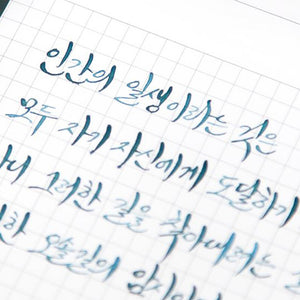 인간의 일생이라는 것은
모두 자기 자신에게 도달하기
그러한 길을 찾아내려는
오솔길의 암시